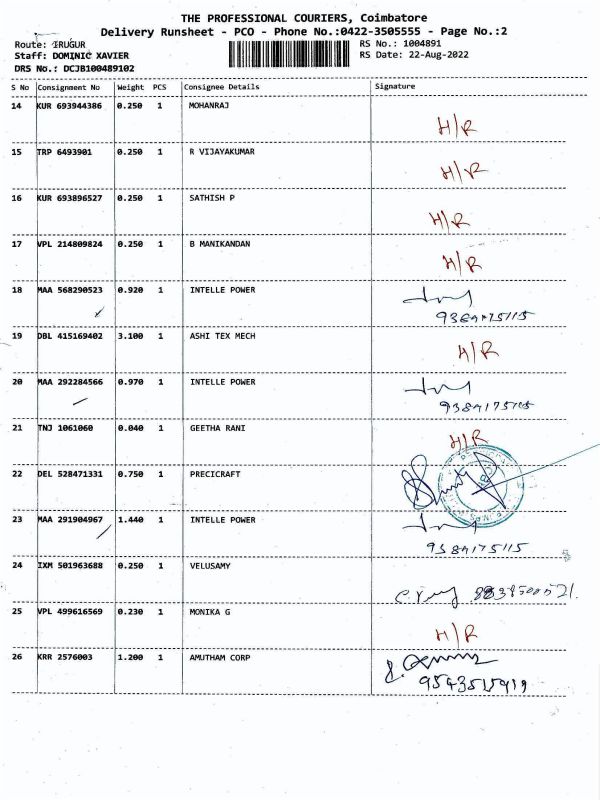 THE PROFESSIONAL COURIERS, Coimbatore
Delivery Runsheet - PCO - Phone No.:0422-3505555 - Page No.:2
Route: IRUGUR
RS No.: 1004891
Staff: DOMINIC XAVIER
RS Date: 22-Aug-2022
DRS No.: DCJB100489102
S No Consignment No Weight PCS Consignee Details Signature
14 KUR 693944386 0.250 1 MOHANRAJ
H/R
15 TRP 6493901 0.250 1 R VIJAYAKUMAR
H/R
16 KUR 693896527 0.250 1 SATHISH P
H/R
17 VPL 214809824 0.250 1 B MANIKANDAN
H/R
18 MAA 568290523 0.920 1 INTELLE POWER
19 DBL 415169402 3.100 1 ASHI TEX MECH
H/R
20 MAA 292284566 0.970 1 INTELLE POWER
21 TNJ 1061060 0.040 1 GEETHA RANI
H/R
22 DEL 528471331 0.750 1 PRECICRAFT
23 MAA 291904967 1.440 1 INTELLE POWER
24 IXM 501963688 0.250 1 VELUSAMY
25 VPL 499616569 0.230 1 MONIKA G
H/R
26 KRR 2576003 1.200 1 AMUTHAM CORP